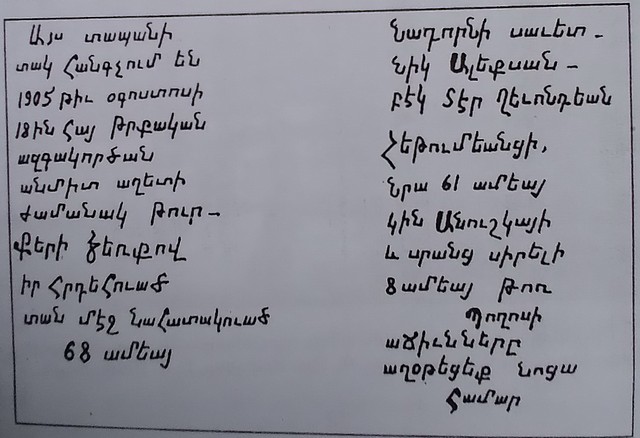 Այս տապանի
տակ Հանգչում են
1905 թիւ օգոստոսի
18ին Հայ Թրքական
ազգակործան
անմիտ աղետի
ժամանակ Թուր-
քերի ձեռքով
իր ՀրդեՀուած
տան մէջ նաՀատակուած
68 ամեայ
նադորնի սաւետ-
նիկ Ալեքսան-
բէկ Տէր Ղեւոնդեան
Հեթումեանցի,
նրա 61 ամեայ
կին Անուշկայի
և սրանց սիրելի
8 ամեայ Թոռ
Պողոսի
աճիւնները
աղօթեցեք նոցա
Համար